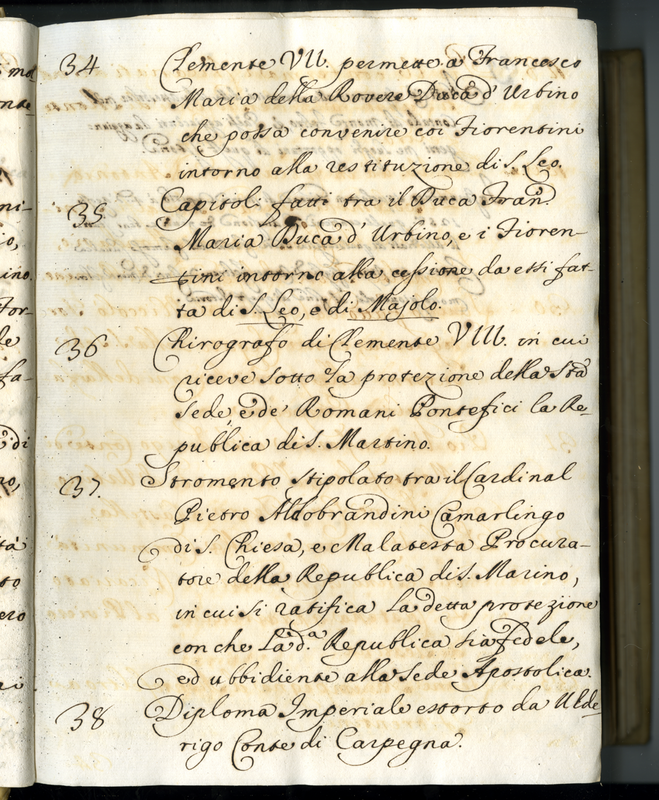 34 Clemente VII. permette a Francesco
Maria della Rovere Duca d'Urbino
che possa convenire coi Fiorentini
intorno alla restituzione di S. Leo.
35 Capitoli fatti tra il Duca Fran.
Maria Duca d'Urbino, e i Fioren-
tini intorno alla cessione da essi fat-
ta di S. Leo, e di Majolo.
36 Chirografo di Clemente VIII. in cui
riceve sotto la protezione della Sta
Sede, e de' Romani Pontefici la Re-
publica di S. Martino.
37. Stromento stipolato tra il Cardinal
Pietro Aldobrandini Camarlingo
di S. Chiesa, e Malatesta Procura-
tore della Republica di S. Marino,
in cui si ratifica la detta protezione
con che la d.ª Republica sia fedele,
ed ubbidiente alla Sede Apostolica.
38 Diploma Imperiale estorto da Ulde-
rigo Conte di Carpegna.